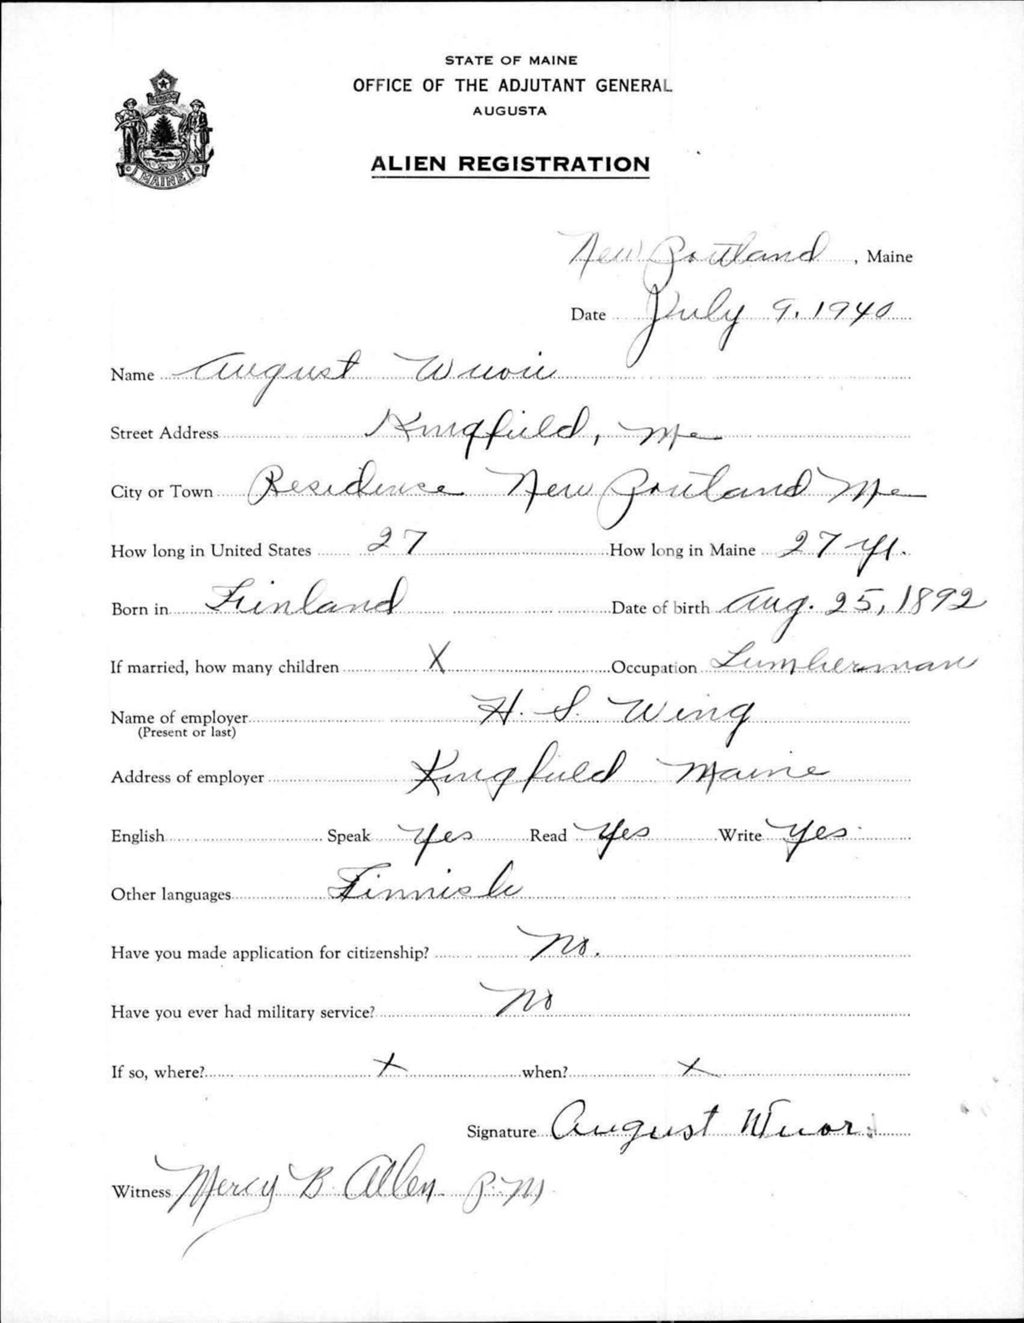 STATE OF MAINE
OFFICE OF THE ADJUTANT GENERAL
AUGUSTA
ALIEN REGISTRATION
MAINE
New Portland, Maine
Date July 9, 1940
Name August Wuori
Street Address Kingfield, Me
City or Town Residence New Portland Me
How long in United States 27 How long in Maine 27 yr.
Born in Finland Date of birth Aug. 25, 1892
If married, how many children X Occupation Lumberman
Name of employer H. S. Wing
(Present or last)
Address of employer Kingfield Maine
English Speak Yes Read Yes Write Yes
Other languages Finnish
Have you made application for citizenship? No.
Have you ever had military service? No
If so, where? X when? X
Signature August Wuori
Witness Mercy B Allen P.M